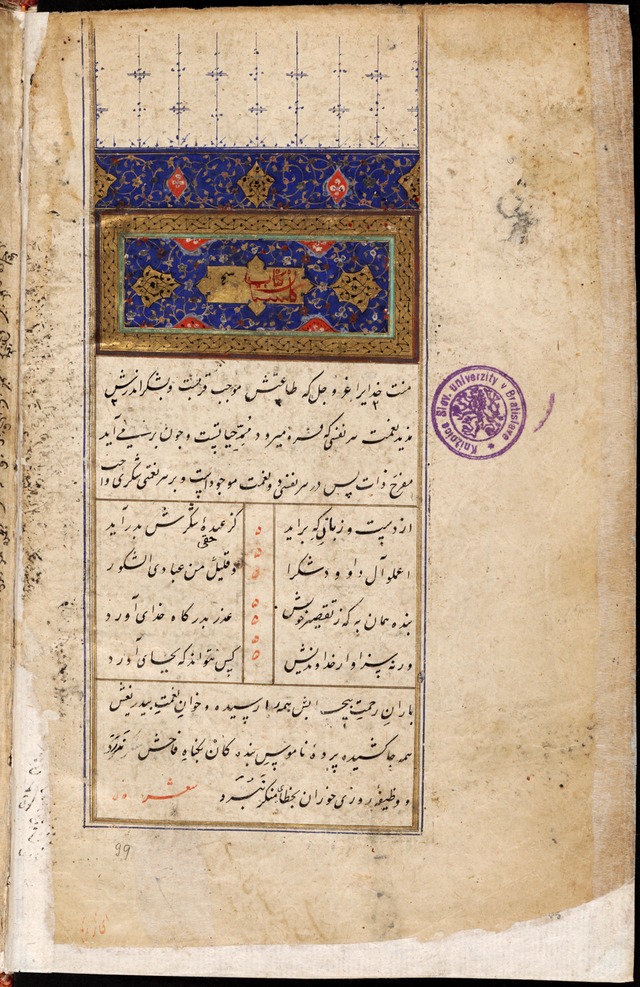 کتاب گلستان
منت خدایرا عز و جل که طاعتش موجب قربتست و بشکر اندرش
مزید نعمت هر نفسی که فرو میرود ممد حیاتست و چون برمی آید
مفرح ذات پس در هر نفسی دو نعمت موجود است و بر هر نعمتی شکری واجب
از دست و زبان که براید کز عهدهٔ شکرش بدر آید
اعملوا آل داود شکرا و قلیل من عبادی الشکور
بنده همان به که ز تقصیر خویش عذر بدرگاه خدای آورد
ورنه سزاوار خداوندیش کس نتواند که بجای آورد
باران رحمت بیحسابش همه را رسیده و خوان نعمت بیدریغش
همه جا کشیده پردهٔ ناموس بندگان بگناه فاحش ندرد
و وظیفه روزی خوران بخطای منکر نبرد شعر
Knižnica Slov. univerzity v Bratislave
99